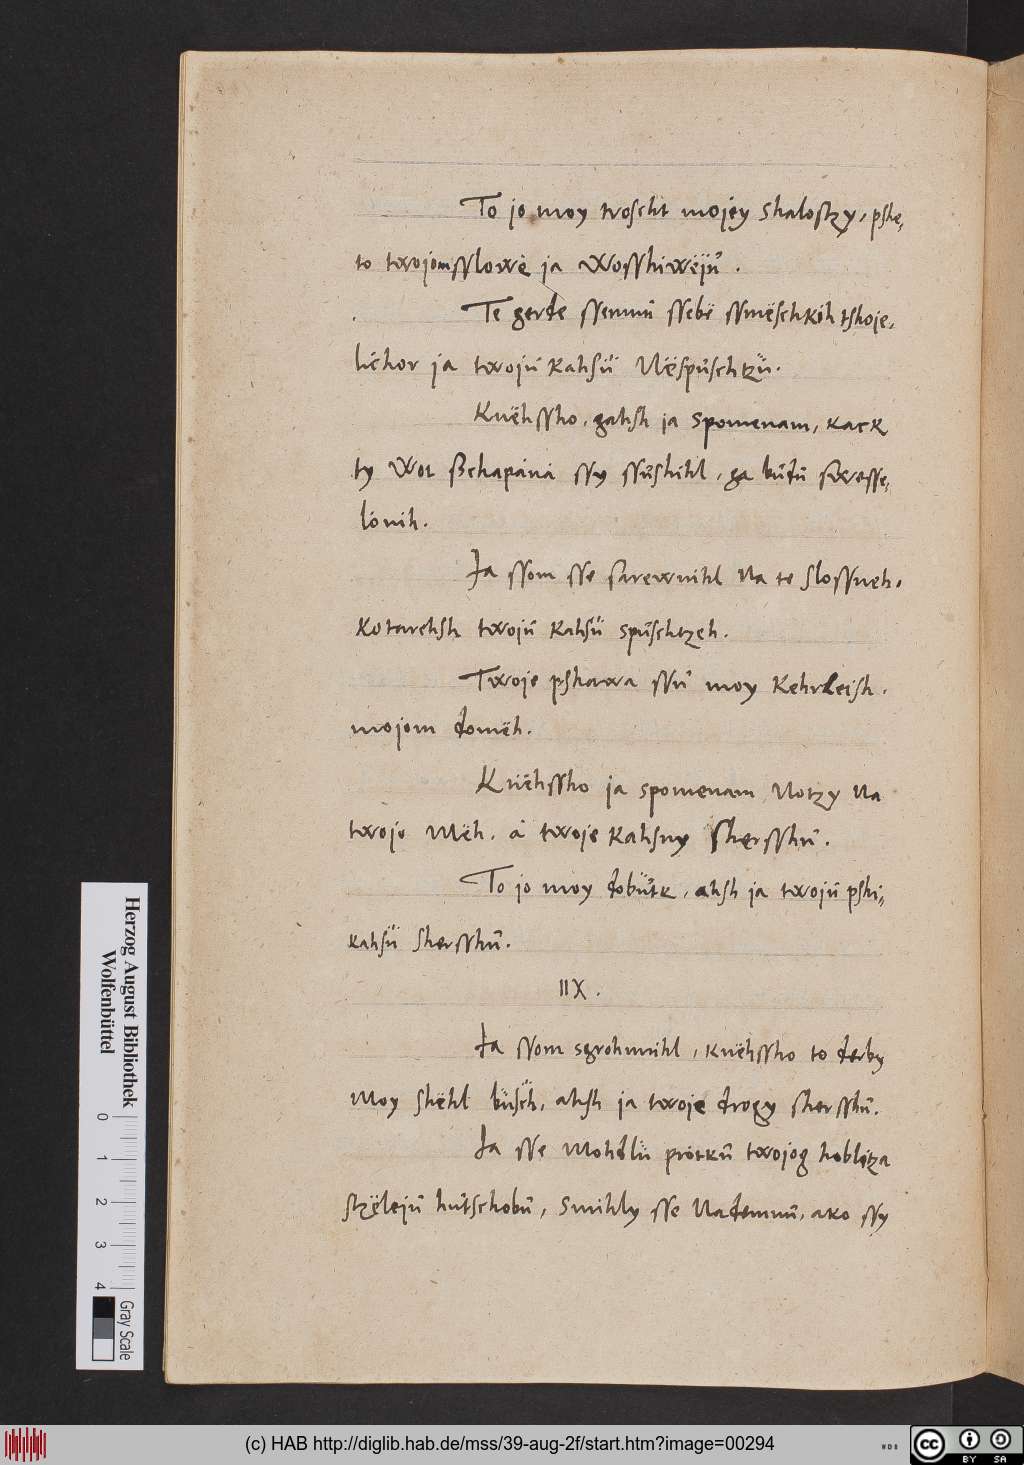 To jo moy troscht mojey shalostzy, pshe„
to twojomsslowe ja Wosshiwëjü̃.
Te gerde ssemmü ssebë ssmëschköh tshoje„
lichor ja twojü Kahsü Nëspüschtzü.
Knëhssho, gahsh ja spomenam, kack
ty Wot Schapáná ssy ssüshihl, ga budü swesse„
lónih.
Ja ssom sse sarewnihl Na te slossneh,
Kotarehsh twojü Kahsü spüschtzeh.
Twoje pshawa ssü moy Kehrleish,
mojom domëh.
Knëhssho ja spomenam Notzy Na
twojo Mëh, á twoje Kahsny shersshü.
To jo moy dobütk, ahsh ja twojü pshi„
kahsü shersshü.
IIX.
Ja ssom sgrohmnihl, knëhssho to derby
Moy shëhl büsch, ahsh ja twoje drogy shersshü.
Ja sse Mohdlü protkü twojog hoblitza
stzëlejü hutschobü, Smihly sse Nademnü, ako ssy
Herzog August Bibliothek
Wolfenbüttel
0 1 2 3 4 Gray Scale
(c) HAB http://diglib.hab.de/mss/39-aug-2f/start.htm?image=00294
WDB
cc BY SA